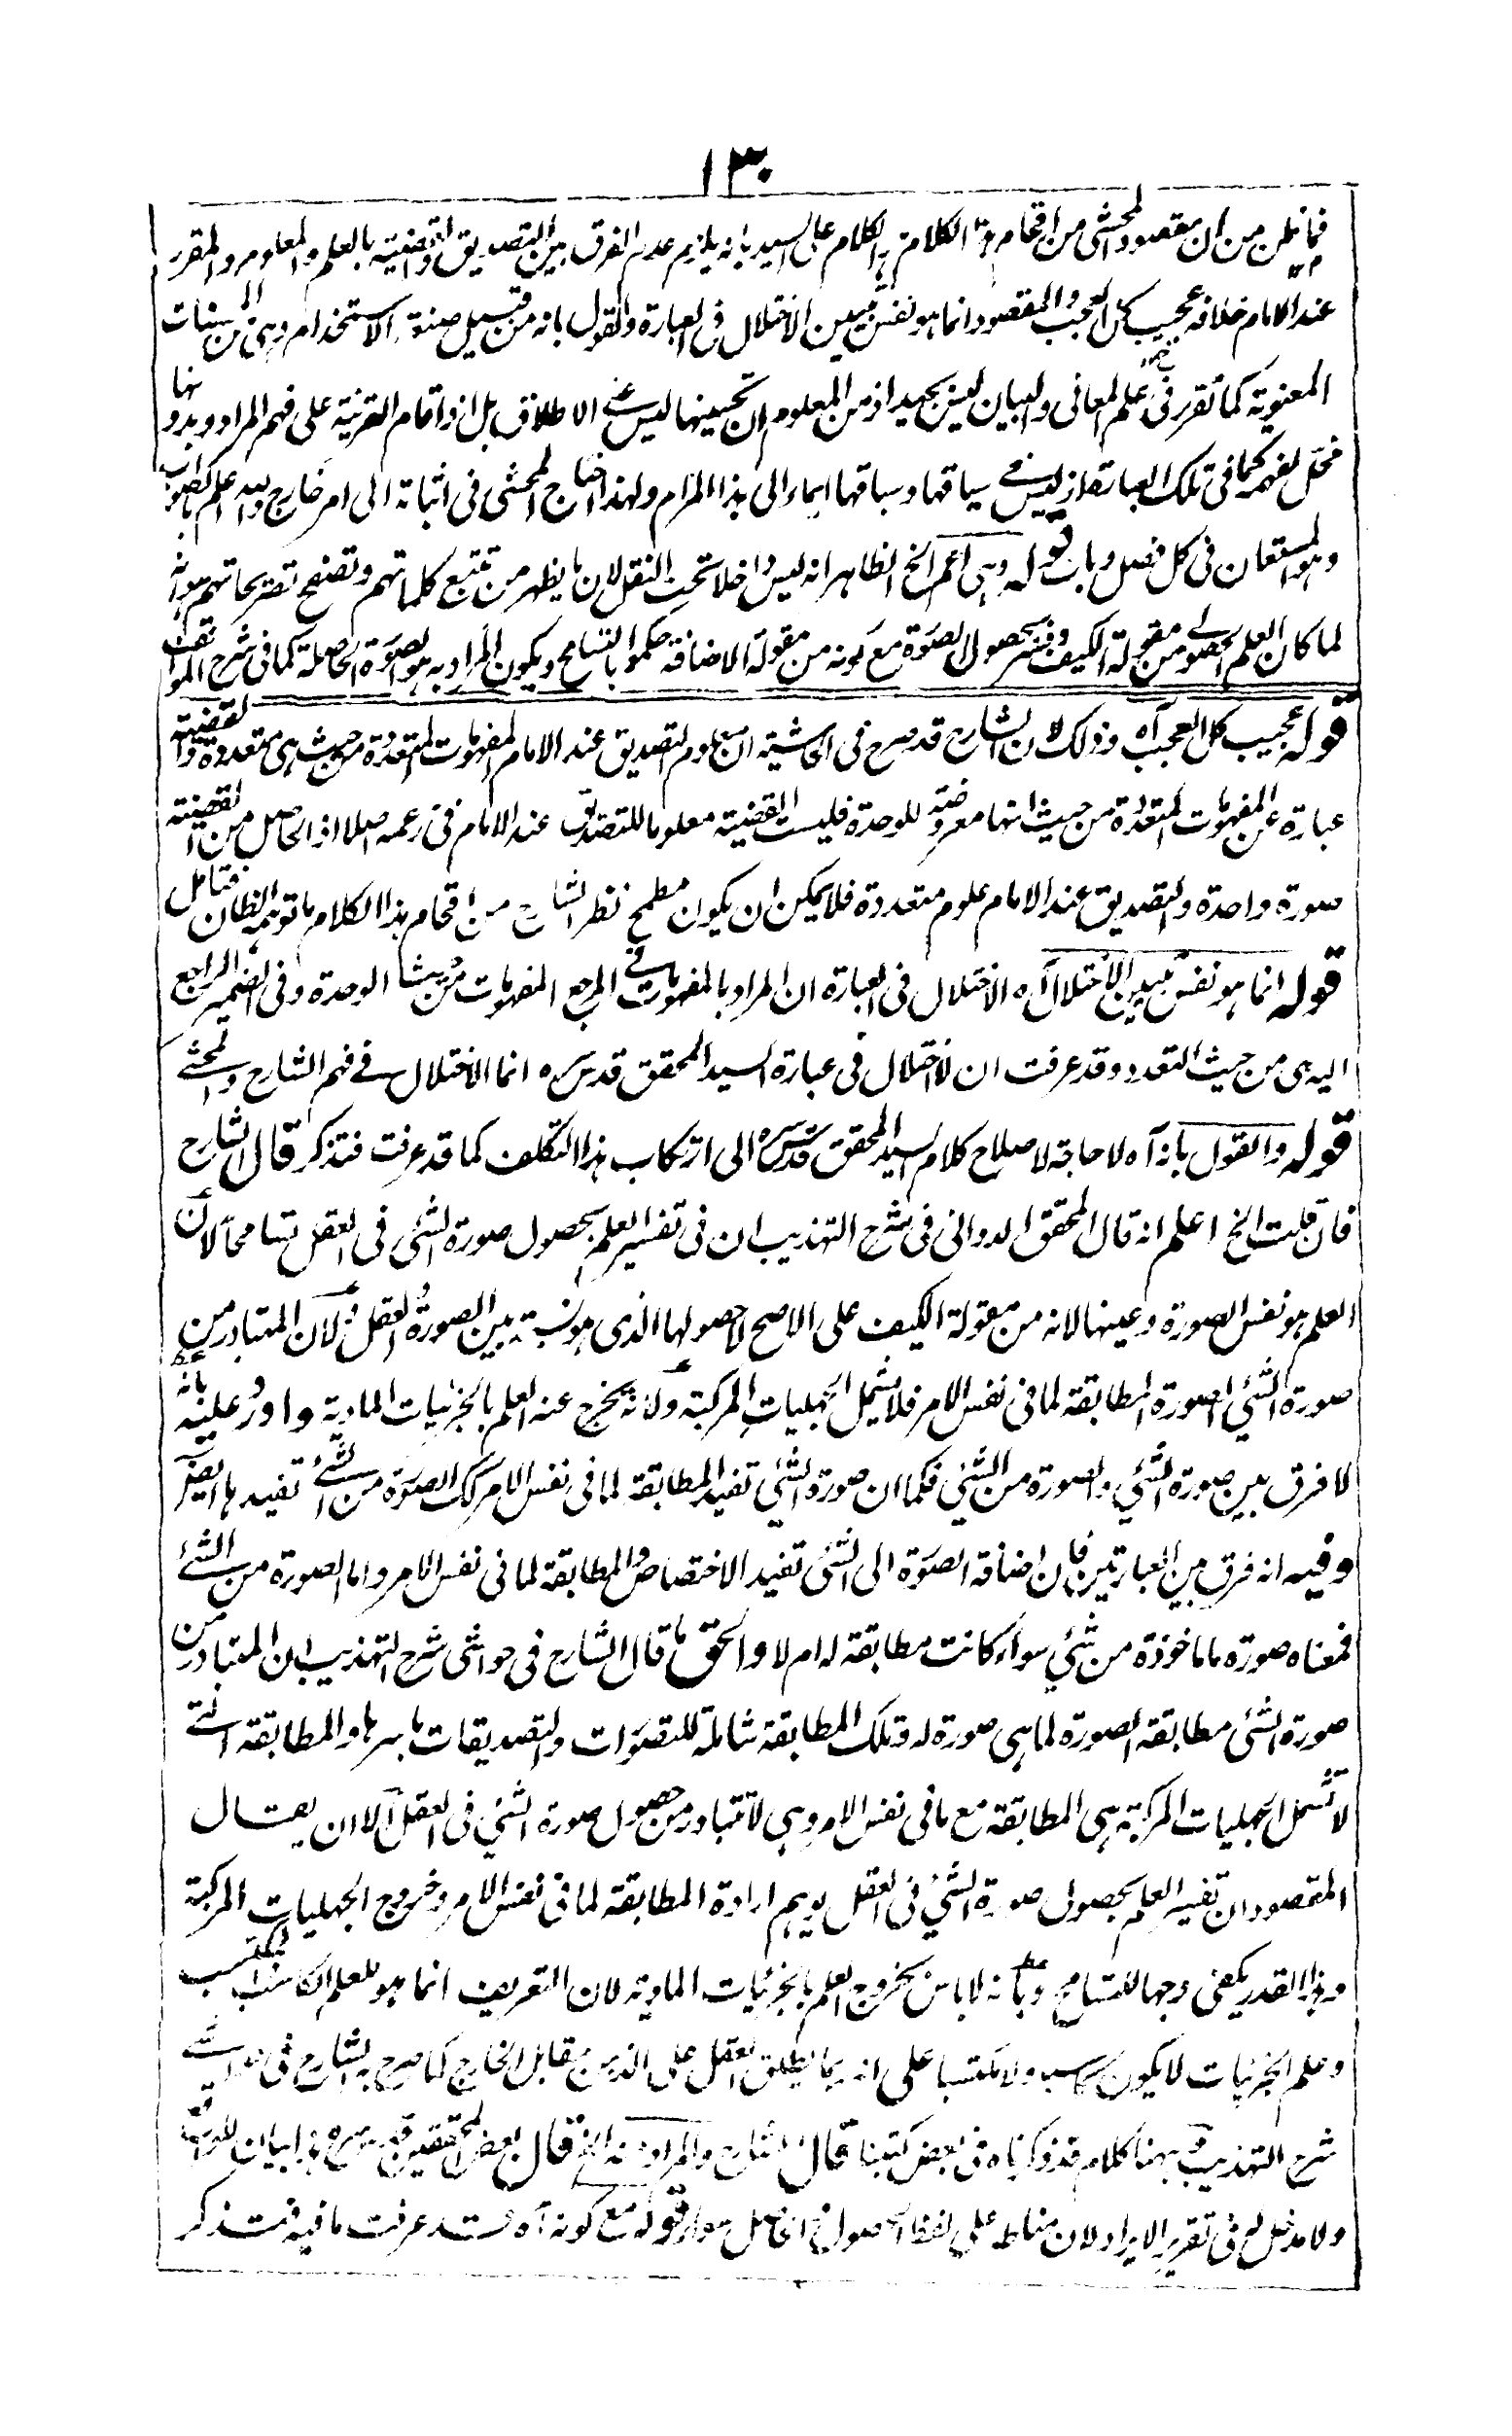 ١٣٠
فما يظن من ان مقصود المحشى من اقحام هذا الكلام الكلام على السيد بانه يلزم عدم الفرق بين التصديق والقضية بالعلم والمعلوم والمقرر
عند الامام خلافه عجيب كل العجب والمقصود انما هو نفس تبيين الاختلال فى العبارة والقول بانه من قبيل صنعة الاستخدام وهى من المحسنات
المعنوية كما تقرر فى علم المعانى والبيان ليس بجيد اذ من المعلوم ان تحسينها ليس على الاطلاق بل اذا قام القرينة على فهم المراد وبدونها
مخل لفهمه كما فى تلك العبارة اذ ليس فى سياقها وسباقها ايماء الى هذا المرام ولهذا احتاج المحشى فى اثباته الى امر خارج والله اعلم بالصواب
وهو المستعان فى كل فصل وباب قوله وهى اعم الخ الظاهر انه ليس داخلا تحت النقل لان ما يظهر من تتبع كلماتهم وتصفح تصريحاتهم هو انه
لما كان العلم الحصولى من مقولة الكيف وفسر بحصول الصورة مع كونه من مقولة الاضافة حكموا بالتسامح ويكون المراد به هو الصورة الحاصلة كما فى شرح المواقف
قوله عجيب كل العجب آه وذلك لان الشارح قد صرح فى الحاشية ان معلوم التصديق عند الامام المفهومات المتعددة من حيث هى متعددة والقضية
عبارة عن المفهومات المتعددة من حيث انها معروضة للوحدة فليست القضية معلوما للتصديق عند الامام فى زعمه اصلا اذ الحاصل من القضية
صورة واحدة والتصديق عند الامام علوم متعددة فلا يمكن ان يكون مطمح نظر الشارح من اقحام هذا الكلام ما توهمه الظان فتامل
قوله انما هو نفس تبيين الاختلال آه الاختلال فى العبارة ان المراد بالمفهومات فى المرجع المفهومات من حيث الوحدة وفى الضمير الراجع
اليه هى من حيث التعدد وقد عرفت ان لا اختلال فى عبارة السيد المحقق قدس سره انما الاختلال فى فهم الشارح والمحشى
قوله والقول بانه آه لا حاجة لاصلاح كلام السيد المحقق قدس سره الى ارتكاب هذا التكلف كما قد عرفت فتذكر قال الشارح
فان قلت الخ اعلم انه قال المحقق الدوانى فى شرح التهذيب ان فى تفسير العلم بحصول صورة الشئ فى العقل تسامحا لان
العلم هو نفس الصورة وعينها لانه من مقولة الكيف على الاصح لا حصولها الذى هو نسبة بين الصورة والعقل ولان المتبادر من
صورة الشئ الصورة المطابقة لما فى نفس الامر فلا يشمل الجهليات المركبة ولانه يخرج عنه العلم بالجزئيات المادية واورد عليه بانه
لا فرق بين صورة الشئ والصورة من الشئ فكما ان صورة الشئ تفيد المطابقة لما فى نفس الامر كك الصورة من الشئ تفيدها ايضا
وفيه انه فرق بين العبارتين فان اضافة الصورة الى الشئ تفيد الاختصاص والمطابقة لما فى نفس الامر واما الصورة من الشئ
فمعناه صورة ما ماخوذة من شئ سواء كانت مطابقة له ام لا والحق ما قال الشارح فى حواشى شرح التهذيب ان المتبادر من
صورة الشئ مطابقة الصورة لما هى صورة له وتلك المطابقة شاملة للتصورات والتصديقات باسرها والمطابقة التى
لا تشمل الجهليات المركبة هى المطابقة مع ما فى نفس الامر وهى لا تتبادر من حصول صورة الشئ فى العقل الا ان يقال
المقصود ان تفسير العلم بحصول صورة الشئ فى العقل يوهم ارادة المطابقة لما فى نفس الامر وخروج الجهليات المركبة
وهذا القدر يكفى وجها للتسامح وبانه لا باس بخروج العلم بالجزئيات المادية لان التعريف انما هو للعلم الكاسب المكتسب
وعلم الجزئيات لا يكون كاسبا ولا مكتسبا على انه ربما يطلق العقل على الذهن مقابل الخارج كما صرح به الشارح فى حواشى
شرح التهذيب وههنا كلام قد ذكرناه فى بعض كتبنا قال الشارح والمراد منه الخ قال بعض المحققين قدس سره هذا بيان للواقع
ولا مدخل له فى تقرير الايراد لان مناطه على لفظ الحصول فى الحاصل سواء قوله مع كونه آه قد عرفت ما فيه فتذكر